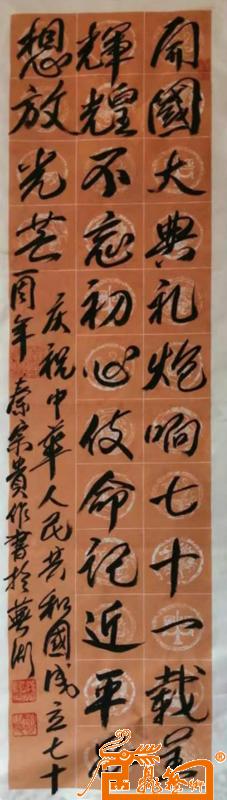 開國大典礼炮响七十一載
輝煌不忘初心使命記近平思
想放光芒
庆祝中華人民共和國成立七十
一周年秦宗貴作書於蕪湖